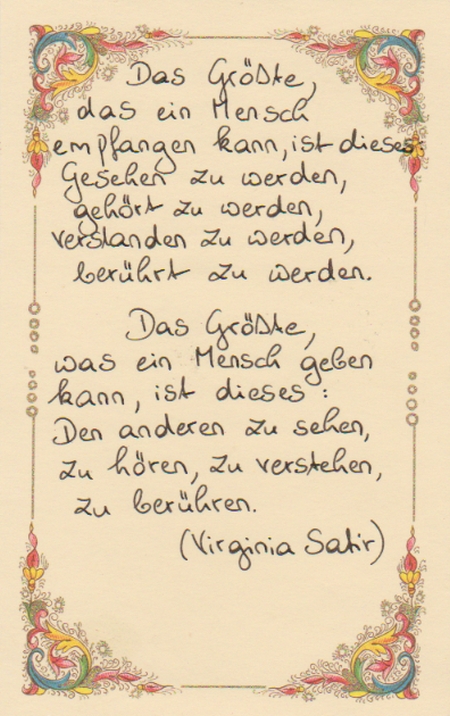 Das Größte,
das ein Mensch
empfangen kann, ist dieses:
Gesehen zu werden,
gehört zu werden,
verstanden zu werden,
berührt zu werden.
Das Größte,
was ein Mensch geben
kann, ist dieses:
Den anderen zu sehen,
zu hören, zu verstehen,
zu berühren.
(Virginia Satir)